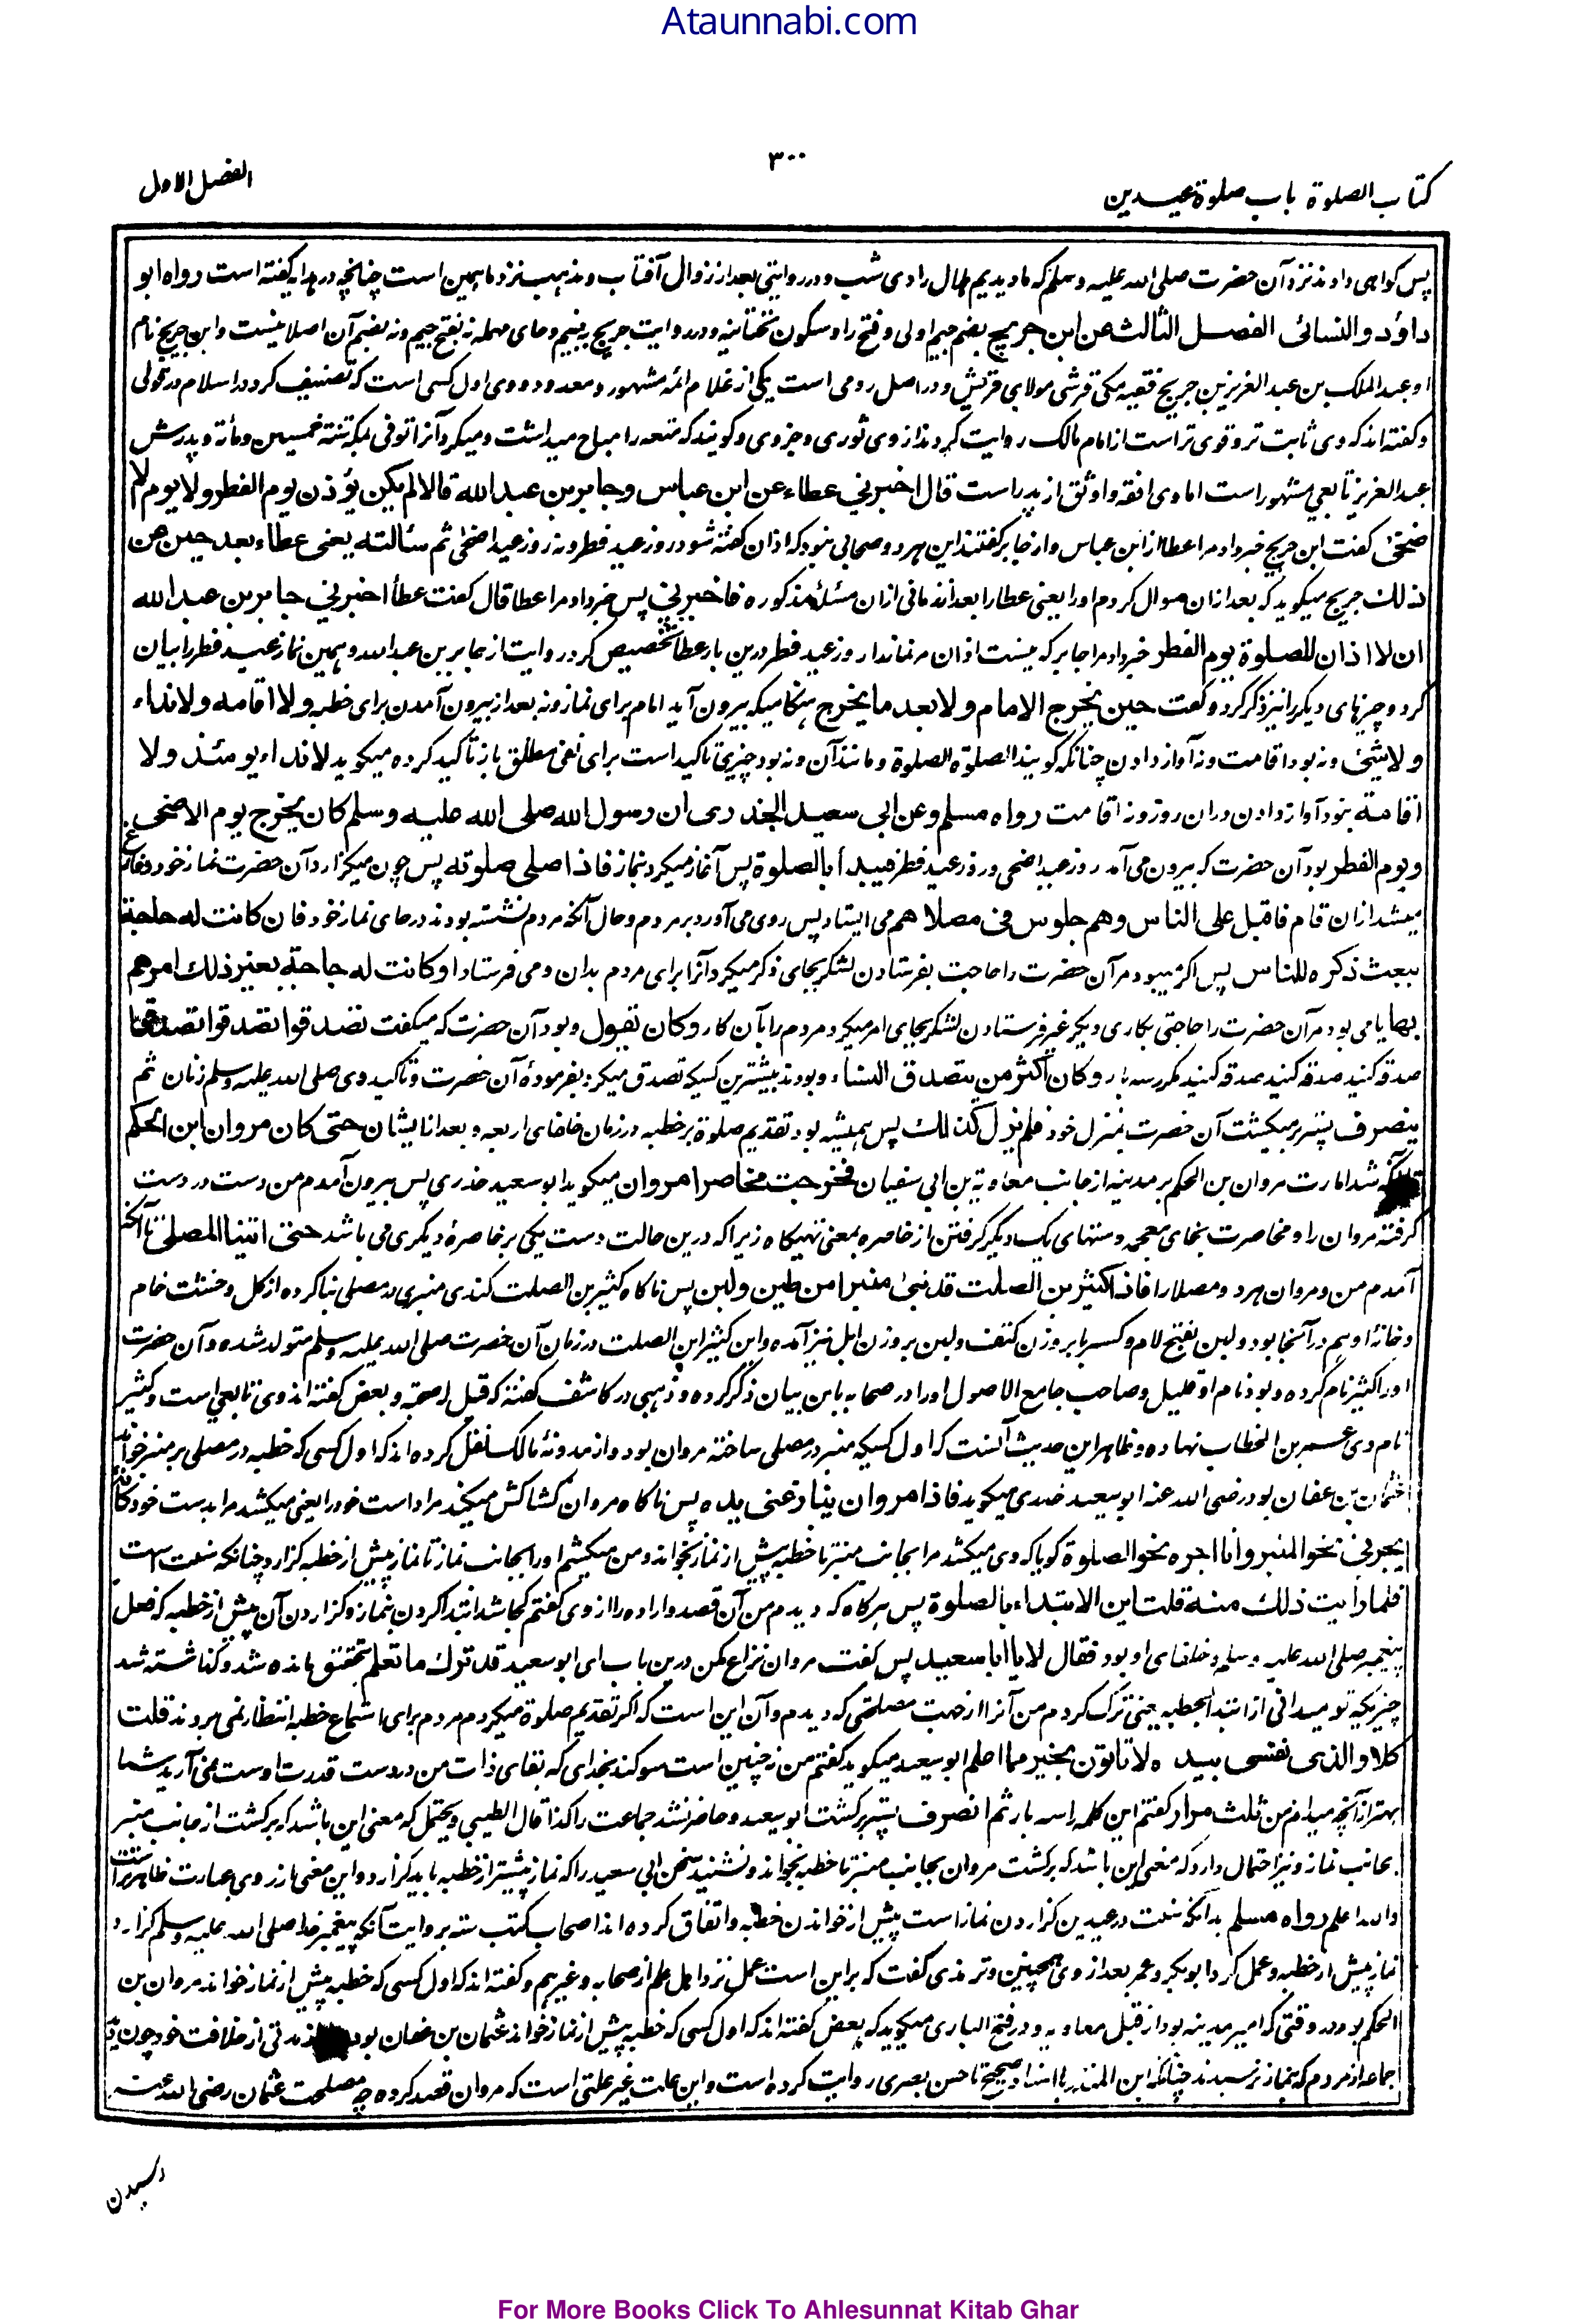 Ataunnabi.com
۳۰۰
کتاب الصلوة باب صلوة عیدین
الفصل الاول
پس کواهی دادند نزد آن حضرت صلی الله علیه وسلم که ما دیدیم هلال را دی شب و در روایتی بعد از زوال آفتاب و مذهب نزد ما همین است چنانچه در هدایه گفته است رواه ابو
داؤد والنسائی الفصل الثالث عن ابن جریج بضم جیم اولی و فتح را و سکون تختانیه و در روایت جریج به جیم و حای مهمله نه بفتح جیم و نه بضم آن اصلا نیست و ابن جریج نام
او عبد الملک بن عبد العزیز بن جریج فقیه مکی قرشی مولای قریش و در اصل رومی است یکی از علام ائمه مشهور و معدود و وی اول کسی است که تصنیف کرد در اسلام در قولی
و کفته اند که وی ثابت تر و قوی تر است از امام مالک روایت کردند از وی ثوری و جز وی و کویند که متعه را مباح میداشت و میکرد آنرا توفی بمکه سنة خمسین ومأنه و پدرش
عبد العزیز تابعی مشهور است اما وی افقه و اوثق از پدر است قال اخبرنی عطاء عن ابن عباس وجابر بن عبد الله قالا لم یکن یؤذن یوم الفطر ولا یوم الا
ضحی کفت ابن جریج خبر داد مرا عطا از ابن عباس و از جابر کفتند این هر دو صحابی نبود که اذان کفته شود روز عید فطر و نه روز عید اضحی ثم سألته یعنی عطاء بعد حین عن
ذلك جریج میکوید که بعد ازان سوال کردم او را یعنی عطا را بعد اندمانی ازان مسئله مذکوره فاخبرنی پس خبر داد مرا عطا قال کفت عطأ اخبرنی جابر بن عبد الله
ان لا اذان للصلوة یوم الفطر خبر داد مرا جابر که نیست اذان مر نماز را روز عید فطر درین بار عطا تخصیص کرد روایت از جابر بن عبد الله و همین نماز عید فطر را بیان
کرد و چیزهای دیکر را نیز ذکر کرد و کفت حین یخرج الامام ولا بعد ما یخرج هنکامیکه بیرون آید امام برای نماز و نه بعد از بیرون آمدن برای خطبه ولا اقامه ولا نداء
ولا شیئ و نه بود اقامت و نه آواز دادن چنانکه کویند الصلوة الصلوة و مانند آن و نه بود چیزی تاکید است برای نفی مطلق باز تأکید کرده میکوید لا نداء یومئذ ولا
اقامة نبود آواز دادن دران روز و نه اقامت رواه مسلم وعن ابی سعید الخدری ان رسول الله صلی الله علیه وسلم کان یخرج یوم الاضحی
ویوم الفطر بود آن حضرت که بیرون می آمد روز عید اضحی و روز عید فطر فیبدأ بالصلوة پس آغاز میکرد بنماز فاذا صلی صلوته پس چون میکزارد آن حضرت نماز خود و فارغ
میشد ازان قام فاقبل علی الناس وهم جلوس فی مصلاهم می ایستاد پس روی می آورد بر مردم و حال آنکه مردم نشسته بودند در جای نماز خود فان کانت له حاجة
ببعث ذکره للناس پس اکر میبود مر آن حضرت را حاجت بفرستادن لشکر بجای ذکر میکرد آنرا برای مردم بدان و می فرستاد او کانت له حاجة بغیر ذلك امرهم
بها یا می بود مر آن حضرت را حاجتی بکاری دیکر غیر فرستادن لشکر بجای امر میکرد مردم را بآن کار وکان یقول و بود آن حضرت که میکفت تصدقوا تصدقوا تصدقوا
صدقه کنید صدقه کنید صدقه کنید مکرر سه بار وکان اکثر من یتصدق النساء و بودند بیشترین کسیکه تصدق میکرد بفرموده آن حضرت و تاکید وی صلی الله علیه وسلم زنان ثم
ینصرف پستر برمیکشت آن حضرت بمنزل خود فلم یزل کذلك پس همیشه بود تقدیم صلوة بر خطبه در زمان خلفای اربعه و بعد از ایشان حتی کان مروان ابن الحکم
شد امارت مروان بن الحکم بر مدینه از جانب معاویة بن ابی سفیان فخرجت مخاصرا مروان میکوید ابو سعید خدری پس بیرون آمدم من دست در دست
کرفته مروان را و مخاصرت بخای معجمه دستهای یک دیکر کرفتن از خاصره بمعنی تهیکاه زیرا که درین حالت دست یکی بر خاصرهٔ دیکری می باشد حتی اتینا المصلی تا آنکه
آمدم من و مروان هر دو مصلا را فاذا کثیر بن الصلت قد بنی منبرا من طین ولبن پس ناکاه کثیر بن الصلت کندی منبری در مصلی بنا کرده از کل و خشت خام
و خانهٔ او هم در آنجا بود و لبن بفتح لام و کسر با بر وزن کتف و لبن بر وزن ابل نیز آمده و ابن کثیر ابن الصلت در زمان آن حضرت صلی الله علیه وسلم متولد شده و آن حضرت
او را کثیر نام کرده و بود نام او قلیل و صاحب جامع الاصول او را در صحابه باین بیان ذکر کرده و ذهبی در کاشف کفته که قیل له صحبة و بعض کفته اند وی تابعی است و کثیر
نام وی عمر بن الخطاب نهاده و ظاهر این حدیث آنست که اول کسیکه منبر در مصلی ساخته مروان بود و از مدونهٔ مالک نقل کرده اند که اول کسی که خطبه در مصلی بر منبر خواند
عثمان بن عفان بود رضی الله عنه ابو سعید خدری میکوید فاذا مروان ینازعنی یده پس ناکاه مروان کشاکش میکند مرا دست خود را یعنی میکشد مرا بدست خود کانه
یجرنی نحو المنبر وانا اجره نحو الصلوة کویا که وی میکشد مرا بجانب منبر تا خطبه پیش از نماز بخواند و من میکشم او را بجانب نماز تا نماز پیش از خطبه کزارد چنانکه سنت است
فلما رایت ذلك منه قلت این الابتداء بالصلوة پس هرکاه که دیدم من آن قصد و اراده را از وی کفتم کجا شد ابتدا کردن بنماز و کزاردن آن پیش از خطبه که فعل
پیغمبر صلی الله علیه وسلم و خلفای او بود فقال لا یا ابا سعید پس کفت مروان نزاع مکن درین باب ای ابو سعید قد ترك ما تعلم بتحقیق مانده شد و کذاشته شد
چیزیکه تو میدانی از ابتدا بخطبه یعنی ترک کردم من آنرا از جهت مصلحتی که دیدم و آن این است که اکر تقدیم صلوة میکردم مردم برای استماع خطبه انتظار نمی بردند قلت
کلا والذی نفسی بیده لا تاتون بخیر مما اعلم ابو سعید میکوید کفتم من نه چنین است سوکند بخدای که بقای ذات من در دست قدرت اوست نمی آرید شما
بهتر از آنچه میدانم من ثلث مرار کفتم این کلمه را سه بار ثم انصرف پستر برکشت ابو سعید و حاضر نشد جماعت را کذا قال الطیبی و یحتمل که معنی این باشد که برکشت از جانب منبر
بجانب نماز و نیز احتمال دارد که معنی این باشد که برکشت مروان بجانب منبر تا خطبه بخواند و نشنید سخن ابی سعید را که نماز پیشتر از خطبه باید کزارد و این معنی از روی عبارت ظاهرتر است
والله اعلم رواه مسلم بدانکه سنت در عیدین کزاردن نماز است پیش از خواندن خطبه و اتفاق کرده اند اصحاب کتب سته بروایت آنکه پیغمبر خدا صلی الله علیه وسلم کزارد
نماز پیش از خطبه و عمل کرد ابوبکر و عمر بعد از وی همچنین و ترمذی کفت که براین است عمل نزد اهل علم از صحابه و غیرهم و کفته اند که اول کسی که خطبه پیش از نماز خواند مروان بن
الحکم بود در وقتی که امیر مدینه بود از قبل معاویه و در فتح الباری میکوید که بعض کفته اند که اول کسی که خطبه پیش از نماز خواند عثمان بن عفان بود مدتی از خلافت خود چون دید
جماعه از مردم که بنماز نرسیدند چنانکه ابن المنذر باسناد صحیح تا حسن بصری روایت کرده است و این علت غیر علتی است که مروان قصد کرده چه مصلحت عثمان رضی الله عنه
رسیدن
For More Books Click To Ahlesunnat Kitab Ghar